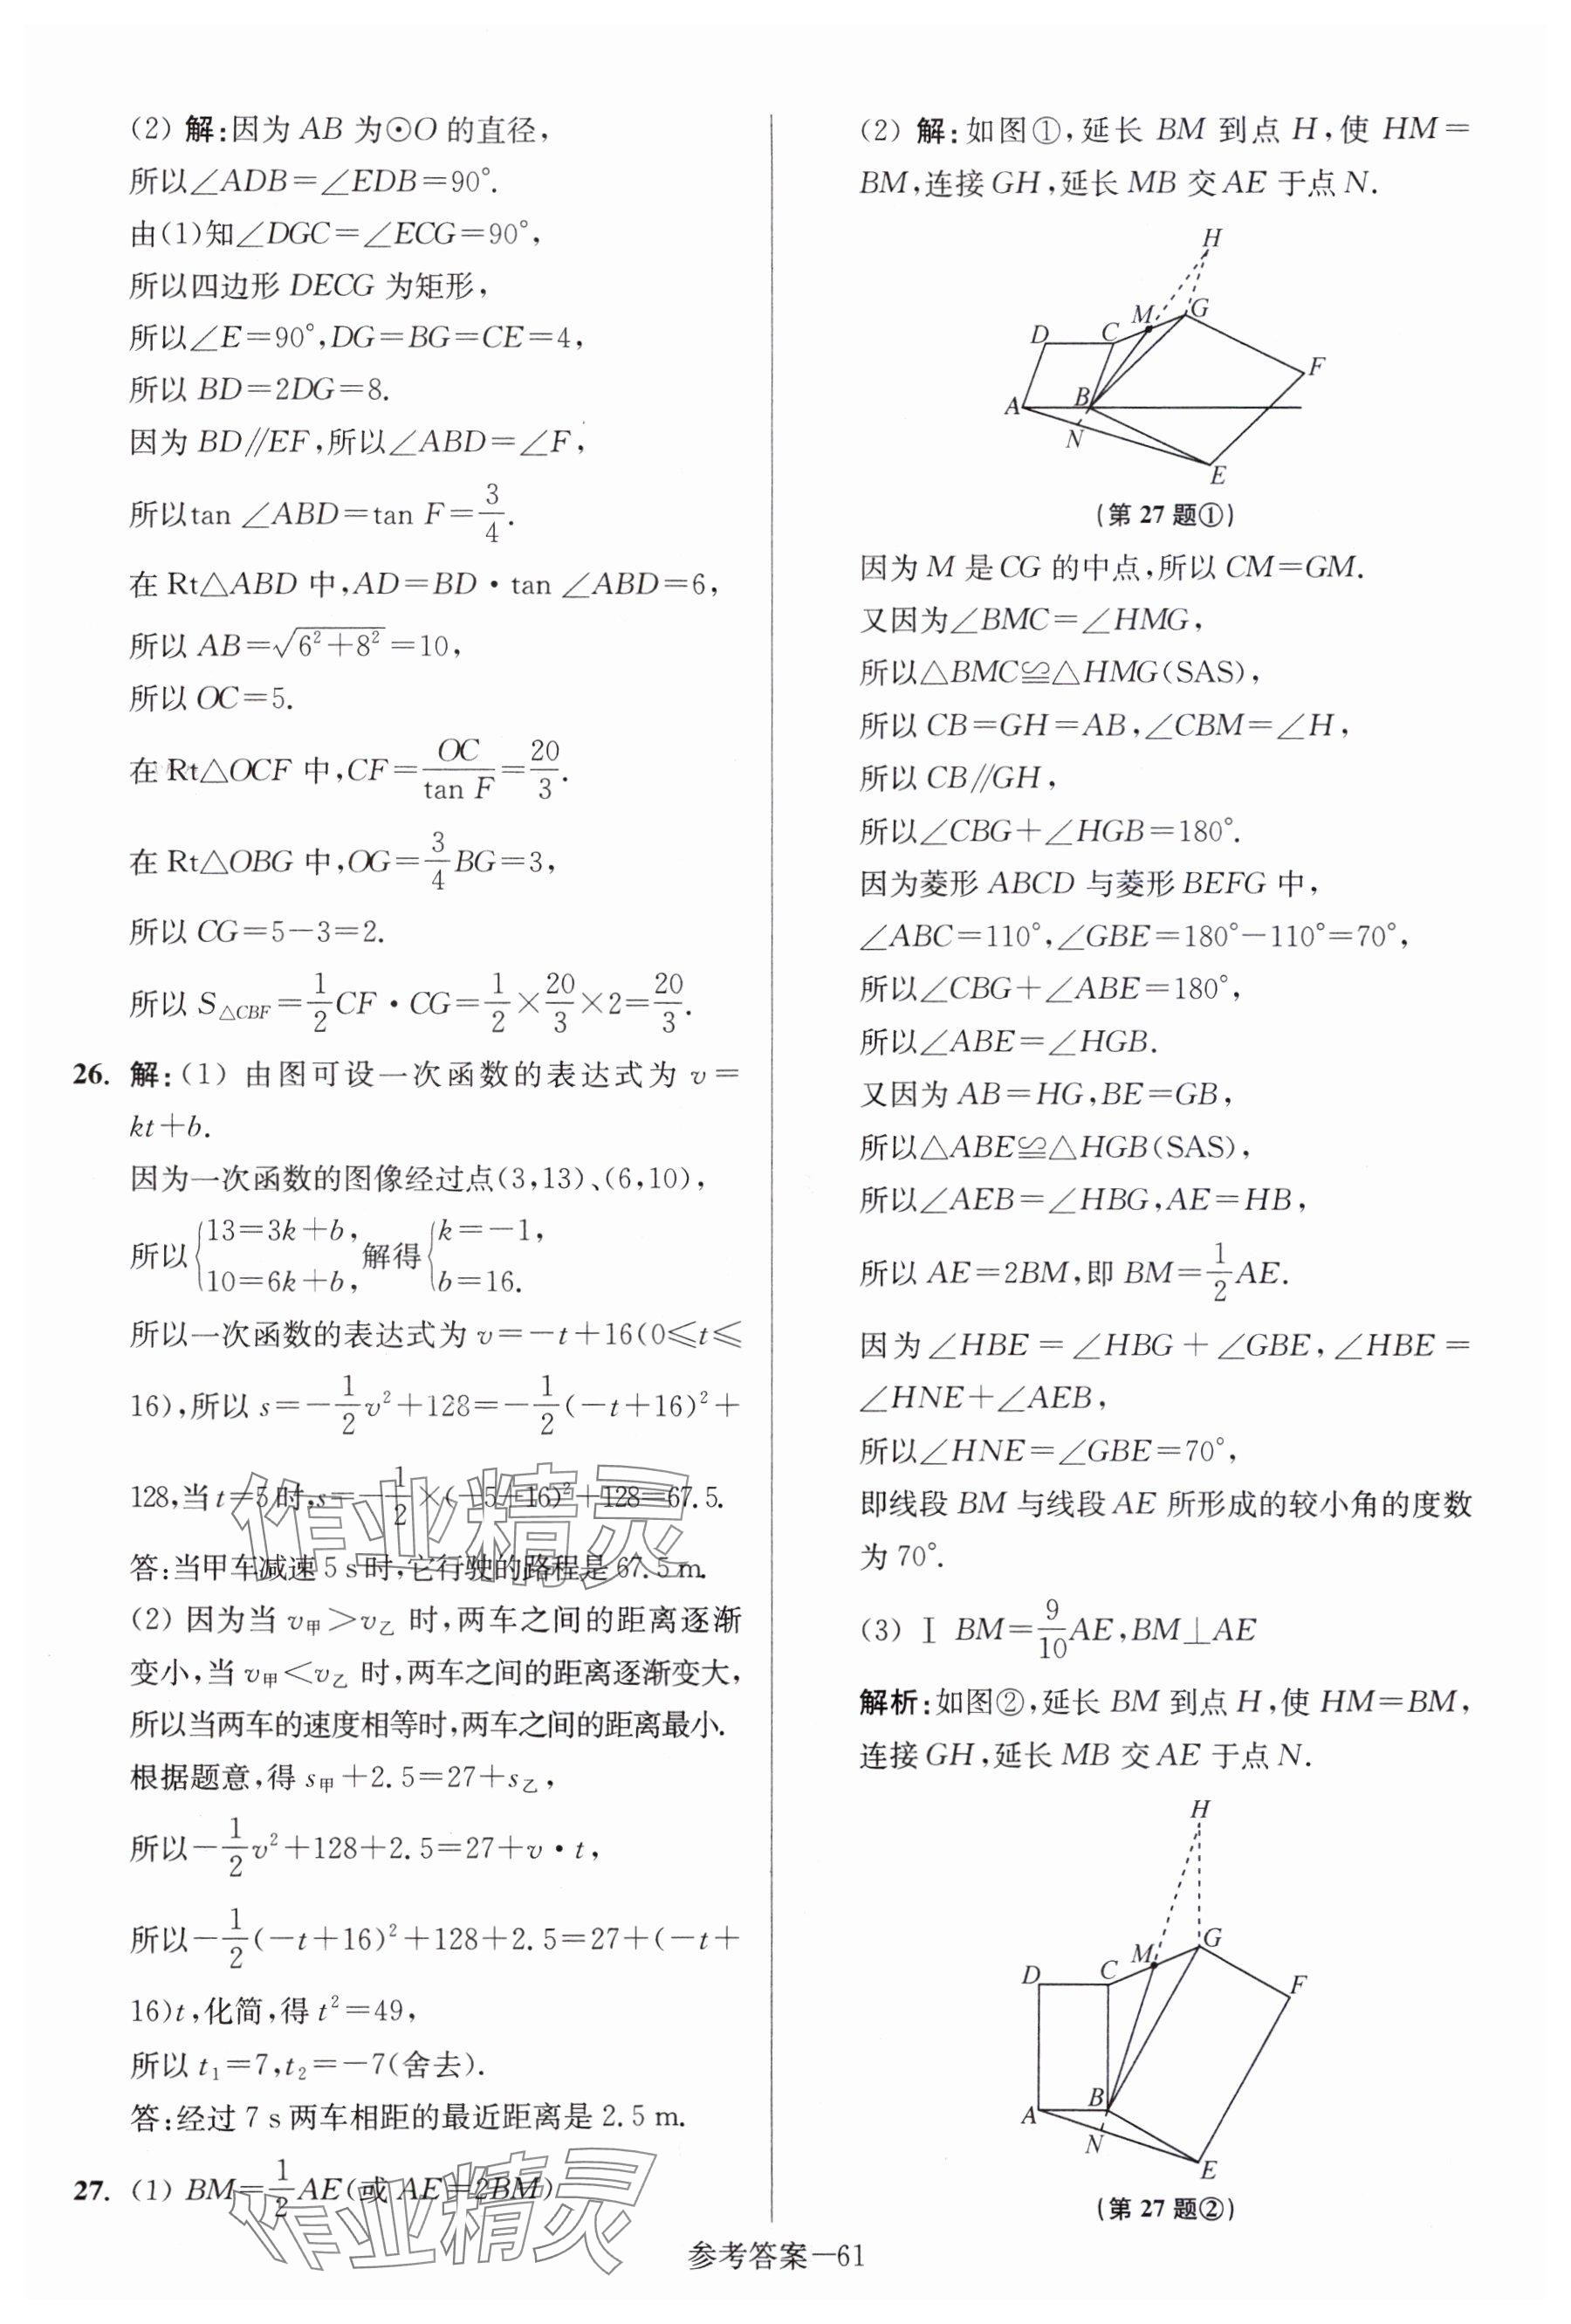 (2) 解:因为 AB 为⊙O 的直径,
所以∠ADB=∠EDB=90°.
由(1)知∠DGC=∠ECG=90°,
所以四边形 DECG 为矩形,
所以∠E=90°,DG=BG=CE=4,
所以 BD=2DG=8.
因为 BD∥EF,所以∠ABD=∠F,
所以tan ∠ABD=tan F=3/4.
在 Rt△ABD 中,AD=BD·tan ∠ABD=6,
所以 AB=√(6²+8²)=10,
所以 OC=5.
在 Rt△OCF 中,CF=OC/tan F=20/3.
在 Rt△OBG 中,OG=3/4BG=3,
所以 CG=5-3=2.
所以 S△CBF=1/2CF·CG=1/2×20/3×2=20/3.
26. 解:(1) 由图可设一次函数的表达式为 v=
kt+b.
因为一次函数的图像经过点(3,13)、(6,10),
所以{13=3k+b, 10=6k+b, 解得{k=-1, b=16.
所以一次函数的表达式为 v=-t+16(0≤t≤
16),所以 s=-1/2v²+128=-1/2(-t+16)²+
128,当 t=5 时,s=-1/2×(-5+16)²+128=67.5.
答:当甲车减速 5 s 时,它行驶的路程是 67.5 m.
(2) 因为当 v甲>v乙 时,两车之间的距离逐渐
变小,当 v甲<v乙 时,两车之间的距离逐渐变大,
所以当两车的速度相等时,两车之间的距离最小.
根据题意,得 s甲+2.5=27+s乙,
所以-1/2v²+128+2.5=27+v·t,
所以-1/2(-t+16)²+128+2.5=27+(-t+
16)t,化简,得 t²=49,
所以 t₁=7,t₂=-7(舍去).
答:经过 7 s 两车相距的最近距离是 2.5 m.
27. (1) BM=1/2AE(或 AE=2BM)
(2) 解:如图①,延长 BM 到点 H,使 HM=
BM,连接 GH,延长 MB 交 AE 于点 N.
H
M G
D C
F
A B
N
E
(第 27 题①)
因为 M 是 CG 的中点,所以 CM=GM.
又因为∠BMC=∠HMG,
所以△BMC≌△HMG(SAS),
所以 CB=GH=AB,∠CBM=∠H,
所以 CB∥GH,
所以∠CBG+∠HGB=180°.
因为菱形 ABCD 与菱形 BEFG 中,
∠ABC=110°,∠GBE=180°-110°=70°,
所以∠CBG+∠ABE=180°,
所以∠ABE=∠HGB.
又因为 AB=HG,BE=GB,
所以△ABE≌△HGB(SAS),
所以∠AEB=∠HBG,AE=HB,
所以 AE=2BM,即 BM=1/2AE.
因为∠HBE=∠HBG+∠GBE,∠HBE=
∠HNE+∠AEB,
所以∠HNE=∠GBE=70°,
即线段 BM 与线段 AE 所形成的较小角的度数
为 70°.
(3) Ⅰ BM=9/10AE,BM⊥AE
解析:如图②,延长 BM 到点 H,使 HM=BM,
连接 GH,延长 MB 交 AE 于点 N.
H
M G
D C
F
A B
N
E
(第 27 题②)
作业精灵
作业精灵
参考答案—61